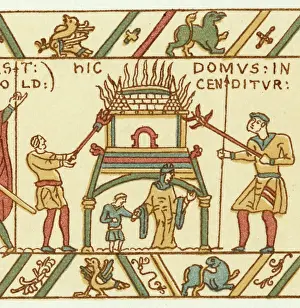 EST: HIC DOMVS: IN
OLD:) CENDITVR: